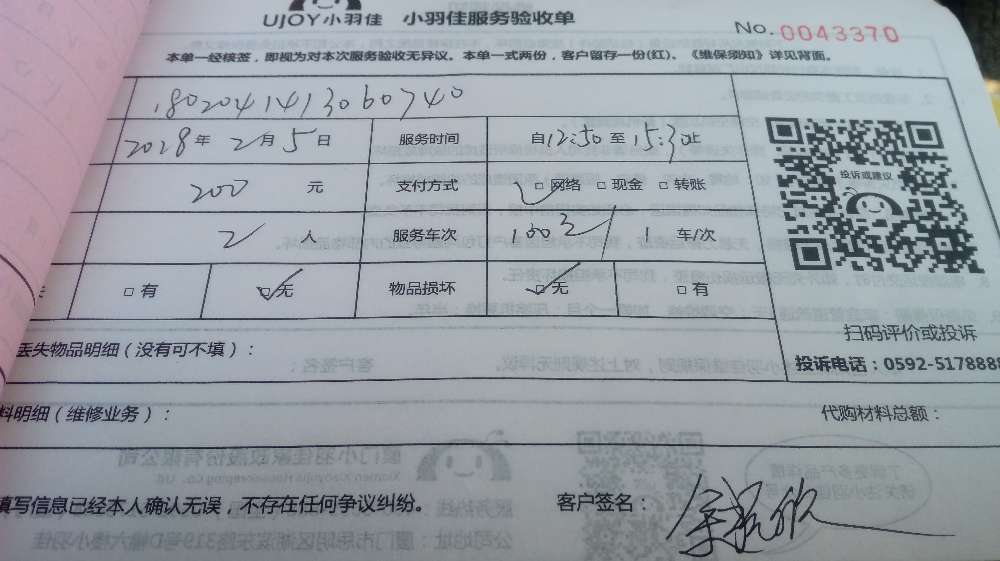 UJOY小羽佳 小羽佳服务验收单
No. 0043370
本单一经核签，即视为对本次服务验收无异议。本单一式两份，客户留存一份(红)。《维保须知》详见背面。
180204141413060740
2028年2月5日 服务时间 自12:50至15:30止
200 元 支付方式 □网络 □现金 □转账
2 人 服务车次 1 车/次
□有 □无 物品损坏 □无 □有
投诉或建议
扫码评价或投诉
丢失物品明细（没有可不填）：
投诉电话：0592-5178888
料明细（维修业务）： 代购材料总额：
填写信息已经本人确认无误，不存在任何争议纠纷。 客户签名：